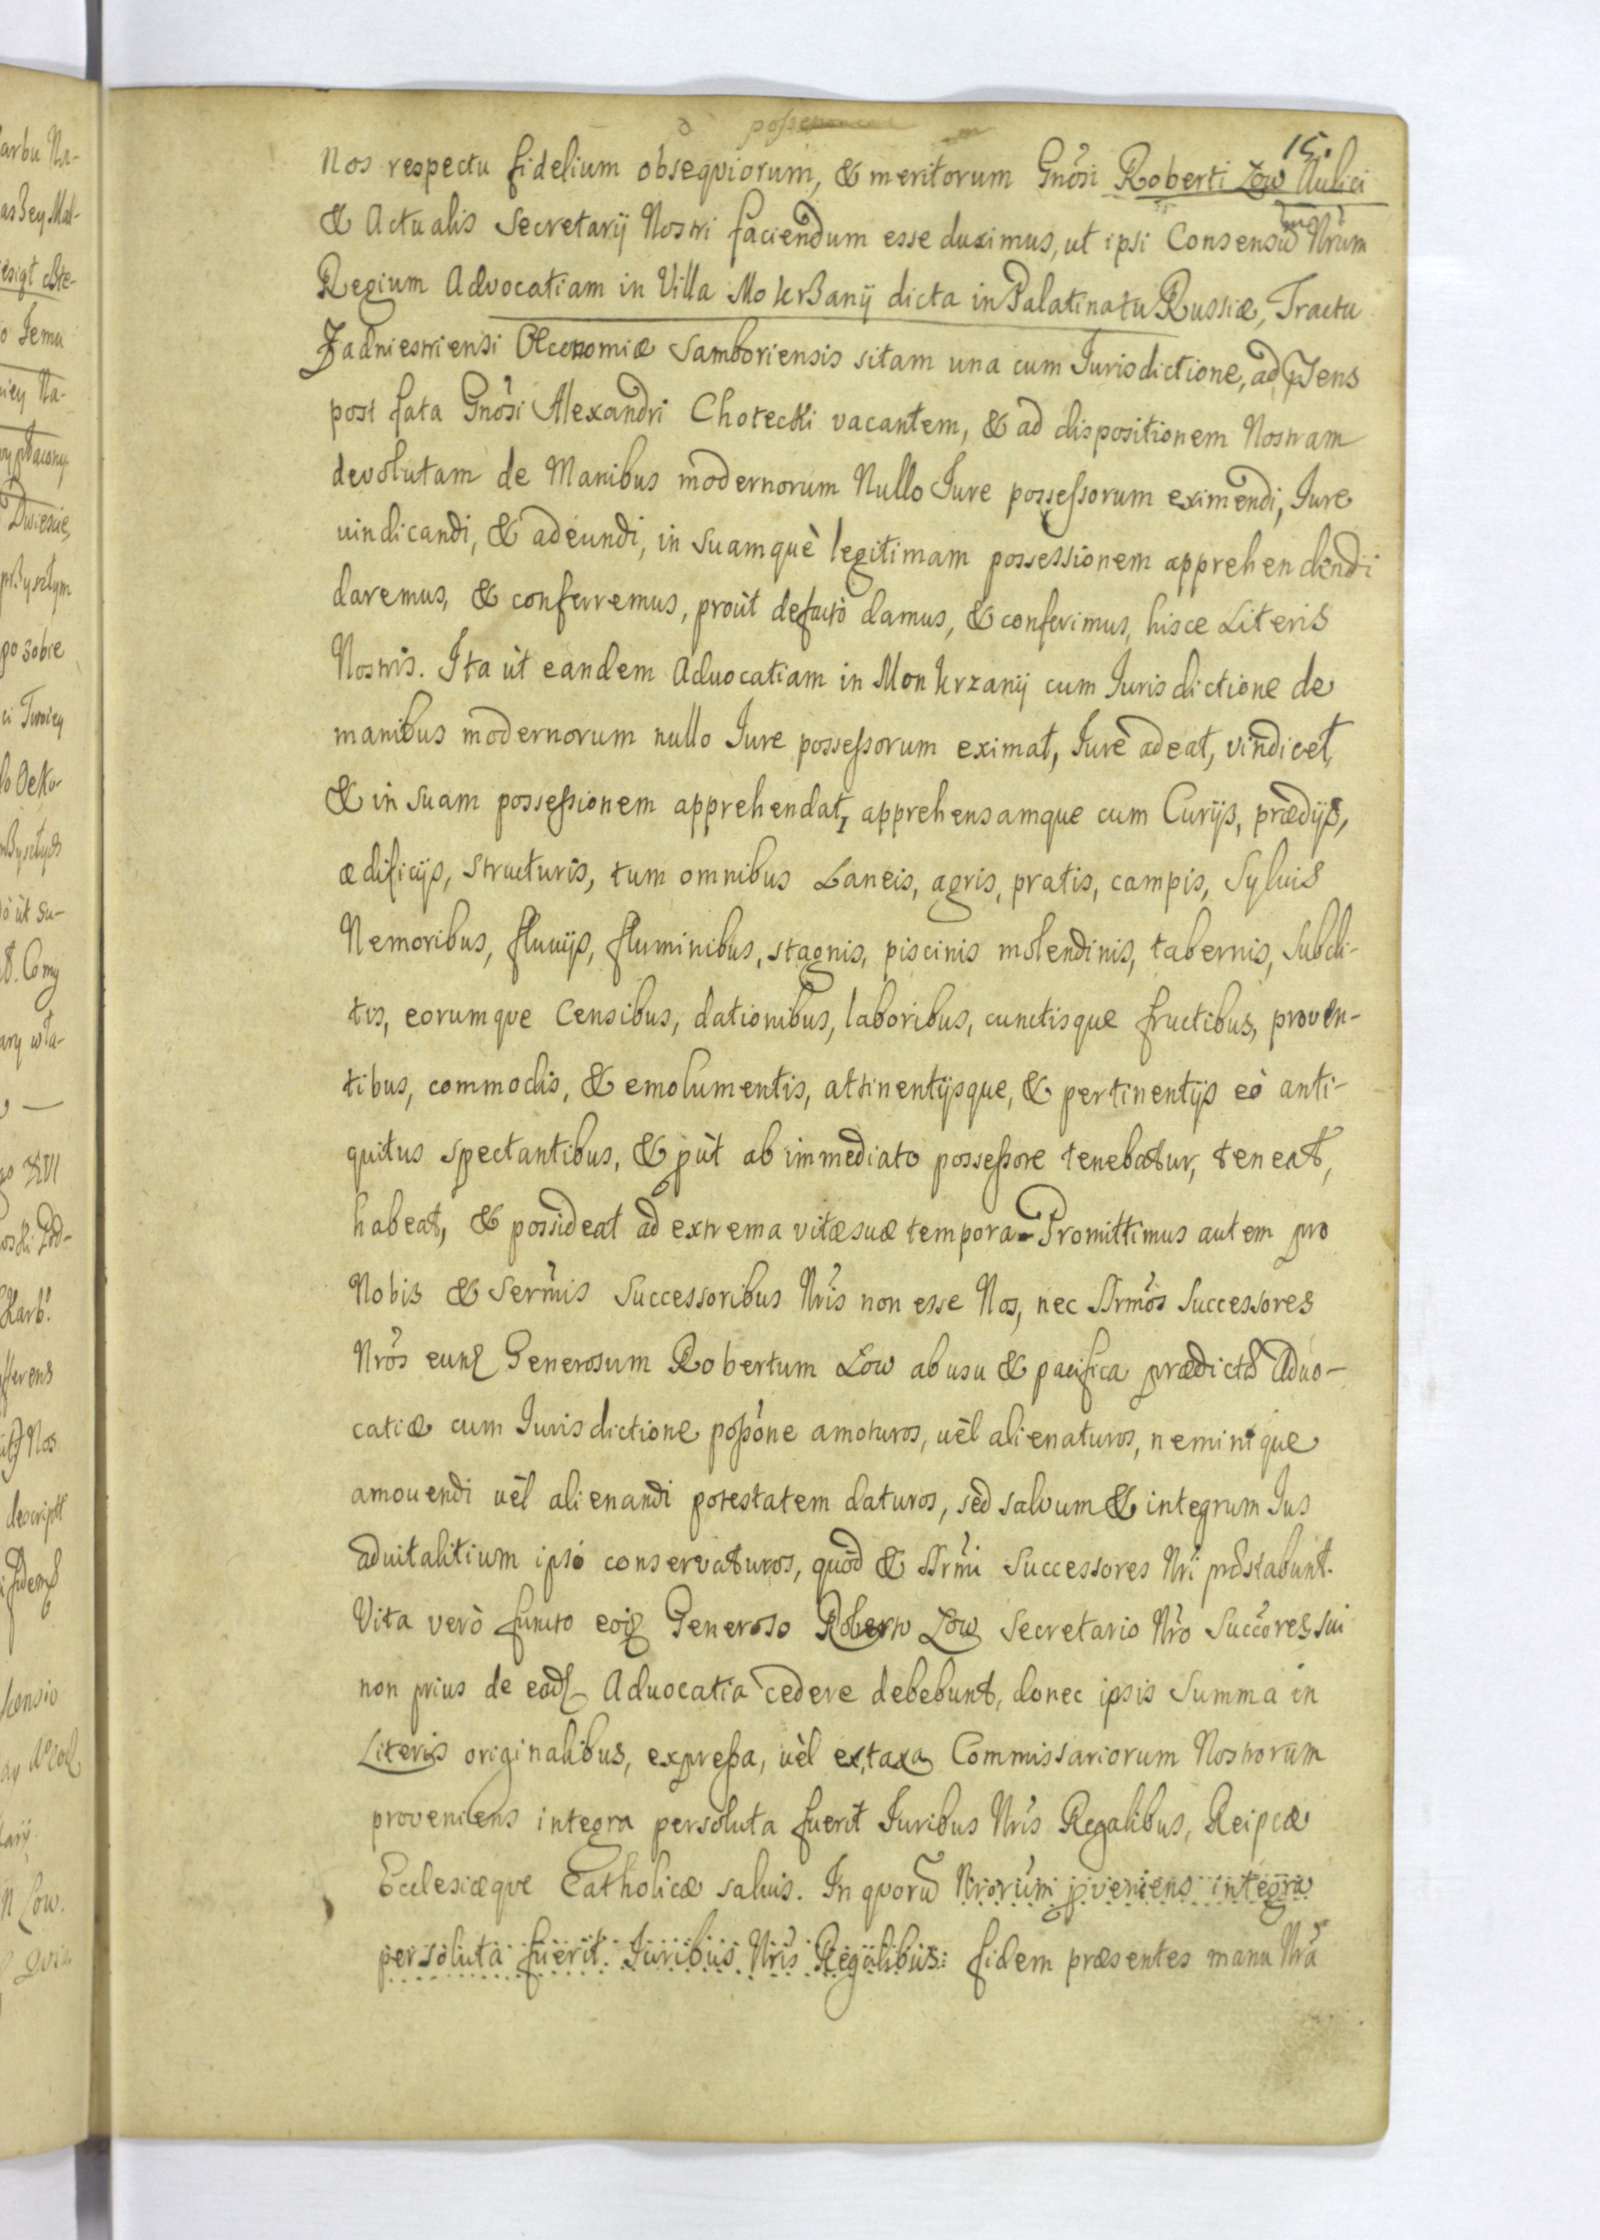 15.
Nos respectu fidelium obsequiorum, & meritorum Gnősi Roberti Low Aulici
& Actualis Secretarij Nostri faciendum esse duximus, ut ipsi Consensu Nr̃um
Regium Advocatiam in Villa MokrBanÿ dicta in Palatinatu Russiæ, Tractu
Zadniestriensi Œconomiæ Samboriensis sitam una cum Jurisdictione, ad p̃sens
post fata Gnősi Alexandri Chotecki vacantem, & ad dispositionem Nostram
devolutam de Manibus modernorum Nullo Jure possessorum eximendi, Jure
uindicandi, & adeundi, in suamquè legitimam possessionem apprehendendi
daremus, & conferremus, proùt defactò damus, & conferimus, hisce Literis
Nostris. Ita ùt eandem Aduocatiam in Monkrzanÿ cum Jurisdictione de
manibus modernorum nullo Jure possessorum eximat, Jure adeat, vindicet,
& in suam possessionem apprehendat, apprehensamque cum Curijs, prædijs,
ædificijs, structuris, tum omnibus Laneis, agris, pratis, campis, Syluis
Nemoribus, fluuijs, fluminibus, stagnis, piscinis molendinis, tabernis, Subdi-
tis, eorumque Censibus, dationibus, laboribus, cunctisque fructibus, proven-
tibus, commodis, & emolumentis, attinentijsque, & pertinentijs eò anti-
quitus spectantibus, & p̃ùt ab immediato possessore tenebatur, teneat,
habeat, & possideat ad extrema vitæ suæ tempora. Promittimus autem pro
Nobis & Serm̃is Successoribus Nr̃is non esse Nos, nec SSrmős Successores
Nrős eund Generosum Robertum Low ab usu & pacifica prædictæ Aduo-
catiæ cum Jurisdictione poss̃one amoturos, uèl alienaturos, neminique
amouendi uèl alienandi potestatem daturos, sed salvum & integrum Jus
aduitalitium ipsi conservaturos, quòd & SSrm̃i Successores Nr̃i præstabunt.
Vita verò functo eoq Generoso Roberto Low Secretario Nr̃o Succőres, sui
non prius de ead Aduocatia cedere debebunt, donec ipsis Summa in
Literis originalibus, expressa, uèl ex taxa Commissariorum Nostrorum
proveniens integra persoluta fuerit Juribus Nr̃is Regalibus, Reipcæ
Ecclesiæque Catholicæ saluis. In quorũ Nrorum p̃veniens integra
persoluta fuerit. Juribus Nr̃is Regalibus: fidem præsentes manu Nr̃a